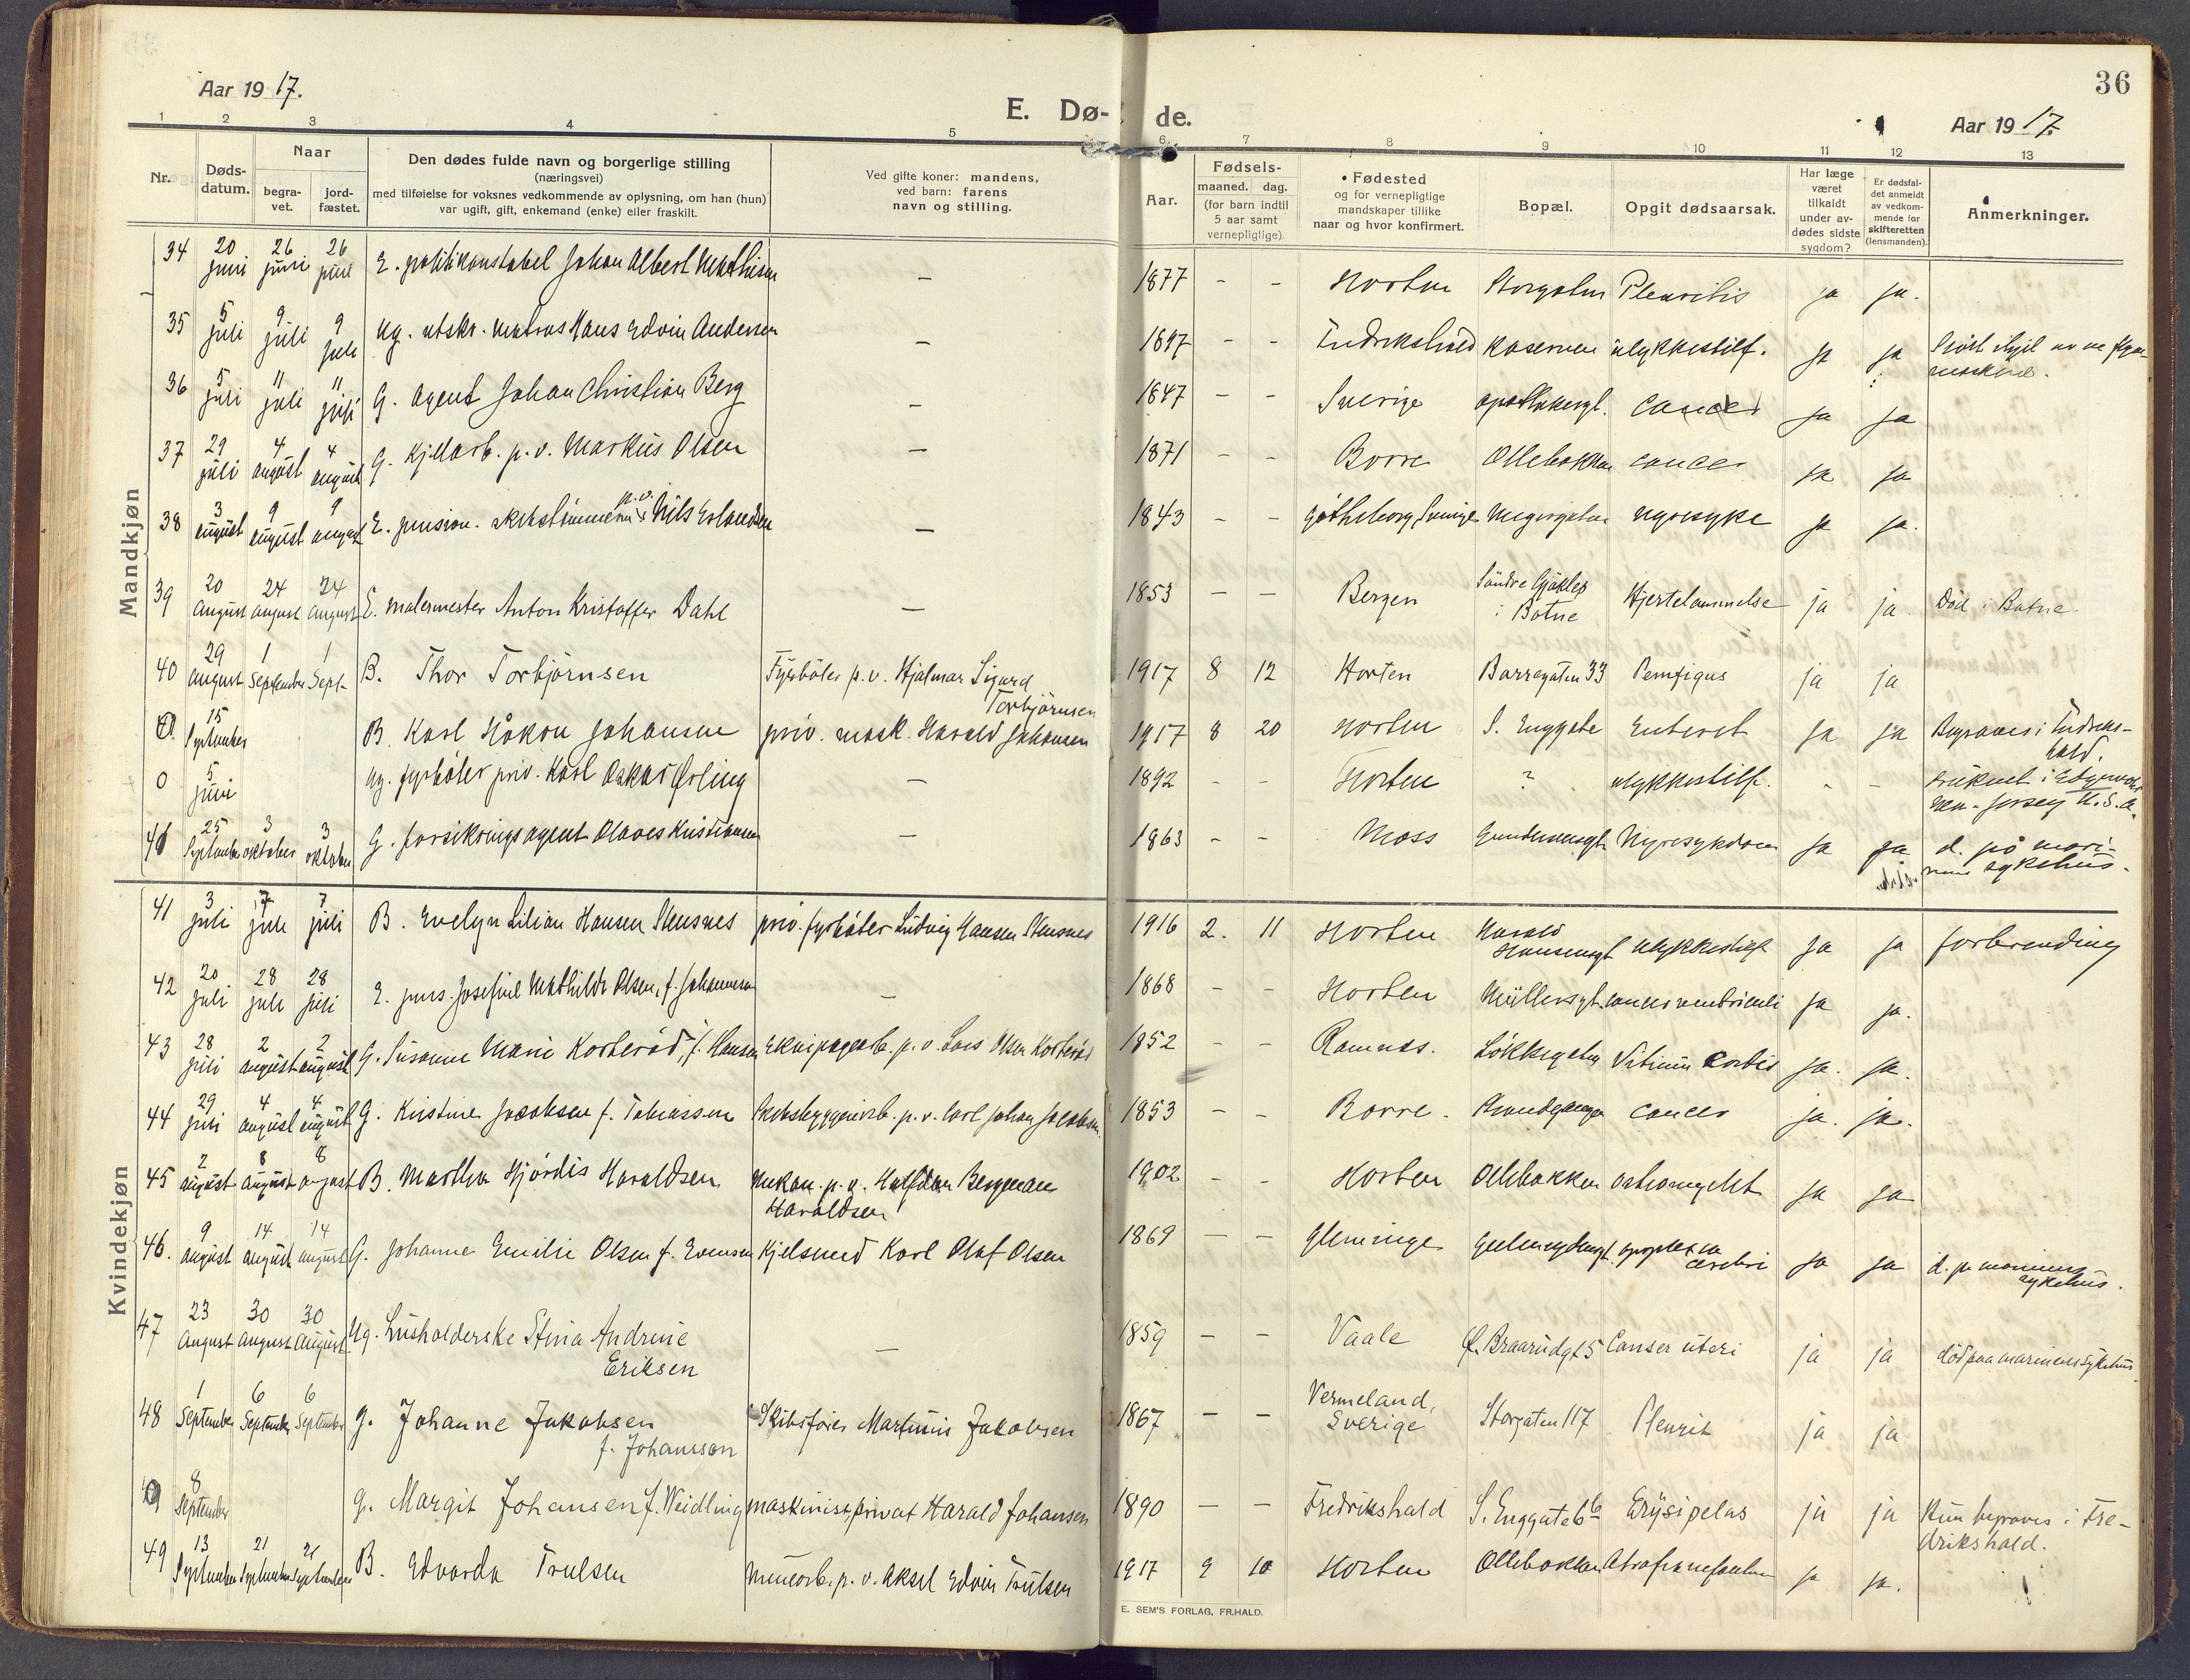 36
Aar 1917.
E. Dø- de.
Aar 1917.
1 2 3 4 5 6 7 8 9 10 11 12 13
Nr.
Døds-
datum.
Naar
begra-
vet.
jord-
fæstet.
Den dødes fulde navn og borgerlige stilling
(næringsvei)
med tilføielse for voksnes vedkommende av oplysning, om han (hun)
var ugift, gift, enkemand (enke) eller fraskilt.
Ved gifte koner: mandens,
ved barn: farens
navn og stilling.
Aar.
Fødsels-
maaned. dag.
(for barn indtil
5 aar samt
vernepligtige)
Fødested
og for vernepligtige
mandskaper tillike
naar og hvor konfirmert.
Bopæl.
Opgit dødsaarsak.
Har læge
været
tilkaldt
under av-
dødes sidste
sygdom?
Er dødsfal-
det anmeldt
av vedkom-
mende for
skifteretten
(lensmanden).
Anmerkninger.
Mandkjøn
34 20 juni 26 juni 26 juni E. politikonstabel Johan Albert Mathisen — 1877 - - Horten Storgaten Pleuritis ja ja.
35 5 juli 9 juli 9 juli ug. utskr. matros Hans Edvin Andersen — 1897 - - Fredrikshald Kasernen ulykkestilf. ja ja
36 5 juli 11 juli 11 juli G. agent Johan Christian Berg — 1847 - - Sverige apothekergt. cancer ja ja
37 29 juli 4 august 4 august G. Kjelarb. p. v. Markus Olsen — 1871 - - Borre Ollebakken cancer ja ja
38 3 august 9 august 9 august E. pension. skibstømmerm. p.v. Nils Erlandsen — 1843 - - Gøtheborg, Sverige Meyergaten nyresyke ja ja.
39 20 August 24 august 24 August E. malermester Anton Kristoffer Dahl — 1853 - - Bergen Søndre Gjøklep
i Botne Hjertelammelse ja ja. Död i Botne.
40 29 August 1 September 1 Sept. B. Thor Torbjörnsen Fyrböter p. v. Hjalmar Sigurd
Torbjörnsen 1917 8 12 Horten Borregaten 33 Pemfigus ja ja
0 15 September B. Karl Håkon Johansen priv. mask. Harald Johansen 1917 8 20 Horten S. Enggate Enterit ja ja Begraves i Fredriks-
hald.
0 5 juni ug. fyrbøter priv. Karl Oskar Ørling — 1892 - - Horten ? ulykkestilf. - - druknet i Edgewater
New-Jersey U.S.A.
41 25 September 3 oktober 3 oktober G. forsikringsagent Olaves Kristiansen — 1863 - - Moss Gundersensgt. Nyresykdom ja ja d. på mari-
nens sykehus.
Kvindekjøn
41 3 juli 7 juli 7 juli B. Evelyn Lilian Hansen Stensnes priv. fyrbøter Ludvig Hansen Stensnes 1916 2. 11 Horten Harald
Hansensgt ulykkestilf ja ja forbrending
42 20 juli 28 juli 28 juli E. pens. Josefine Mathilde Olsen, f. Johannesen — 1868 - - Horten Müllersgt. cancer ventriculi ja ja.
43 28 juli 2 august 2 august G. Susanne Marie Korterød, f. Hansen Ekvipagearb. p. v. Lars Olsen Korterød 1852 - - Ramnes. Løkkegaten Vitium cordis ja. ja.
44 29 juli 4 august 4 august G. Kristine Jacobsen f. Tobiassen Skibsbyggeriarb. p. v. Carl Johan Jacobsen 1853 - - Borre. Strandgangen cancer ja. ja.
45 2 august 8 august 8 august B. Martha Hjørdis Haraldsen Mekan. p. v. Halfdan Bergmann
Haraldsen 1902 - - Horten Ollebakken osteomyelit ja ja
46. 9 august 14 august 14 august G. Johanne Emilie Olsen f. Evensen Kjelsmed Karl Olaf Olsen 1869 - - Glemminge apoplexia
cerebri ja ja d. på marinens
sykehus.
47 23 August 30 August 30 August Ug. Husholderske Stina Andrine
Eriksen — 1859 - - Vaale F. Braarudgt 5 Canser uteri ja ja död paa marinens sykehus
48 1 September 6 September 6 September g. Johanne Jakobsen
f. Johansson Skibsfører Martinius Jakobsen 1867 - - Vermeland,
Sverige Storgaten 117 Pleurit ja ja
0 8 September g. Margit Johansen f. Weidling maskinist, privat Harald Johansen 1890 - - Fredrikshald S. Enggate 6 b Erysipelas ja ja Kun begraves i Fre-
drikshald.
49 13 September 21 September 21 September B. Edvarda Trulsen minearb. p. v. Aksel Edvin Trulsen 1917 9 10 Horten Ollebakken ja ja.
E. SEM'S FORLAG, FR.HALD.